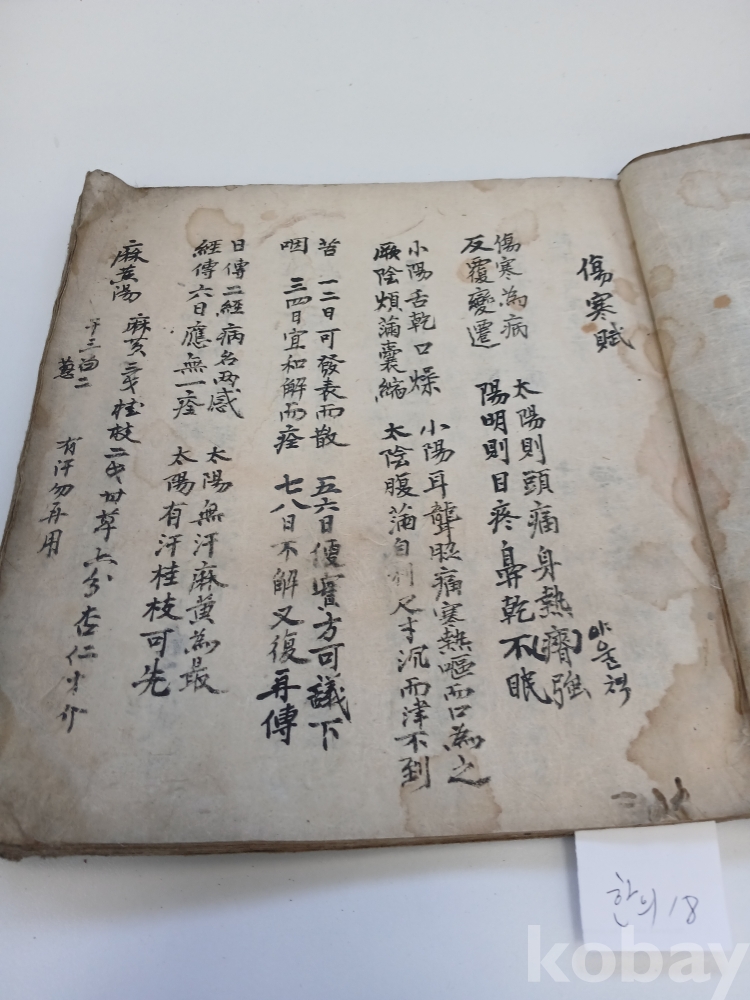 傷寒賦
傷寒為病
反覆變遷
太陽則頭痛身熱膂強
陽明則目疼鼻乾不眠
小陽耳聾脇痛寒熱嘔而口為之
太陰腹滿自利尺寸沉而津不到
小陽舌乾口燥
厥陰煩滿囊縮
苦 一二日可發表而散 五六日便實方可議下
咽 三四日宜和解而痊 七八日不解又復再傳
日傳二經病名兩感 太陽無汗麻黃為最
經傳六日應無一痊 太陽有汗桂枝可先
麻黃湯 麻黃 桂枝 甘草 六分 杏仁
干三 二
葱
有汗勿再用
한의 18
kobay